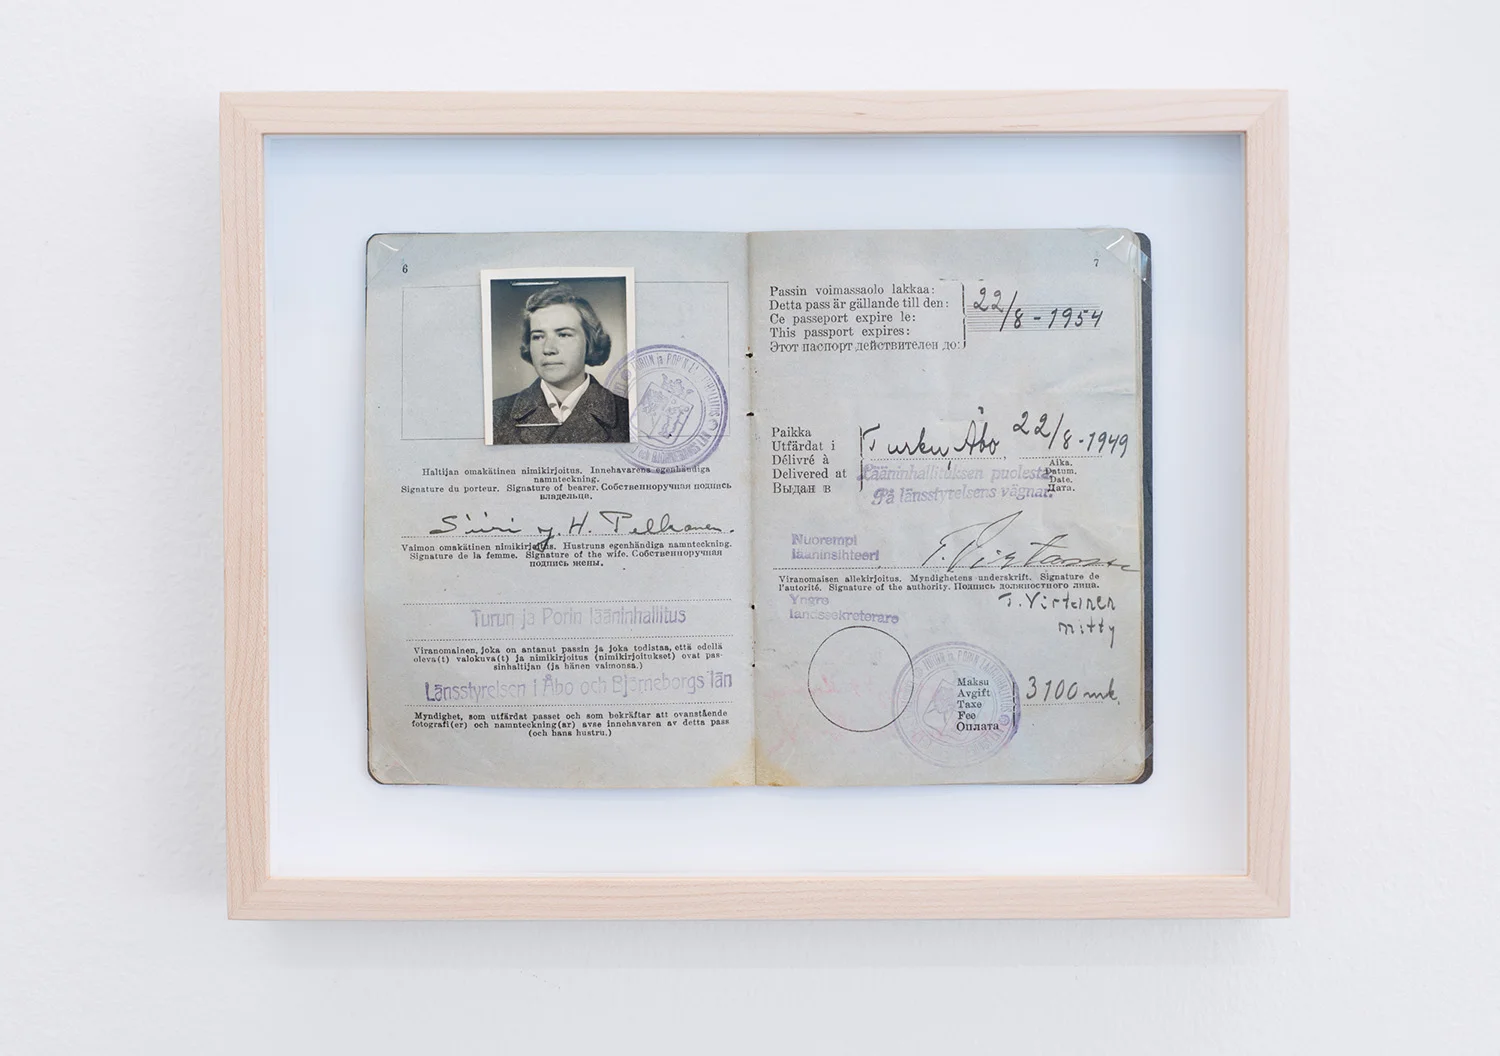 6
Haltijan omakätinen nimikirjoitus. Innehavarens egenhändiga
namnteckning.
Signature du porteur. Signature of bearer. Собственноручная подпись
владельца.
Siiri J. H. Pelkonen.
Vaimon omakätinen nimikirjoitus. Hustruns egenhändiga namnteckning.
Signature de la femme. Signature of the wife. Собственноручная
подпись жены.
Turun ja Porin lääninhallitus
Viranomainen, joka on antanut passin ja joka todistaa, että edellä
oleva(t) valokuva(t) ja nimikirjoitus (nimikirjoitukset) ovat pas-
sinhaltijan (ja hänen vaimonsa.)
Länsstyrelsen i Åbo och Björneborgs län
Myndighet, som utfärdat passet och som bekräftar att ovanstående
fotografi(er) och namnteckning(ar) avse innehavaren av detta pass
(och hans hustru.)
7
Passin voimassaolo lakkaa:
Detta pass är gällande till den:
Ce passeport expire le:
This passport expires:
Этот паспорт действителен до:
22/8-1954
Paikka
Utfärdat i
Délivré à
Delivered at
Выдан в
Turku, Åbo, 22/8-1949
Aika.
Datum.
Date.
Дата.
Lääninhallituksen puolesta:
På länsstyrelsens vägnar:
Nuorempi
lääninsihteeri
T. Virtanen
Viranomaisen allekirjoitus. Myndighetens underskrift. Signature de
l'autorité. Signature of the authority. Подпись должностного лица.
Yngre
landssekreterare
T. Virtanen
Maksu
Avgift
Taxe
Fee
Оплата
3100 mk.